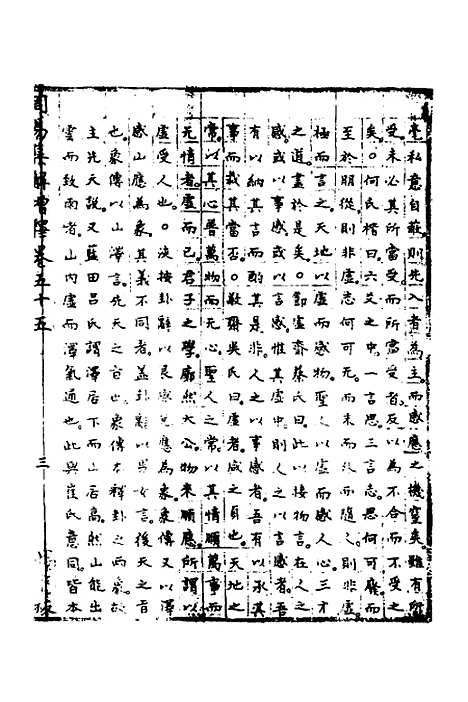 毫私意自蔽則先入者為主而感應之機窒矣雖有所
受未必其所當受而所當受者反以為不合而不受之
矣〇何氏楷曰六爻之中一言思三言志思何可廢而
至於朋從則非虛志何可无而末而外而隨人則非虛
極而言之天地以虛而感物聖人以虛而感人心三才
之道盡於是矣〇節齋蔡氏曰此以接物言在人之
感或以事感或以言感惟其虛中則人之以言感者吾
有以納其言而酌其是非人之以事感者吾有以承其
事而裁其當否〇敬齋吳氏曰虛者咸之貞也天地之
常以其心普萬物而无心聖人之常以其情順萬事而
无情者虛而已君子之學廓然大公物來順應所謂以
虛受人也〇浚按卦辭以艮感兌應為象象傳又以澤
感山應為象其義不同者蓋卦辭以男女言後天之旨
也象傳以山澤言先天之旨也象傳本釋卦之而象故
主先天說又藍田呂氏謂澤居下而山居高然山能出
雲而致雨者山內虛而澤氣通也此與崔氏意同皆本
周易集解增釋卷五十五 三